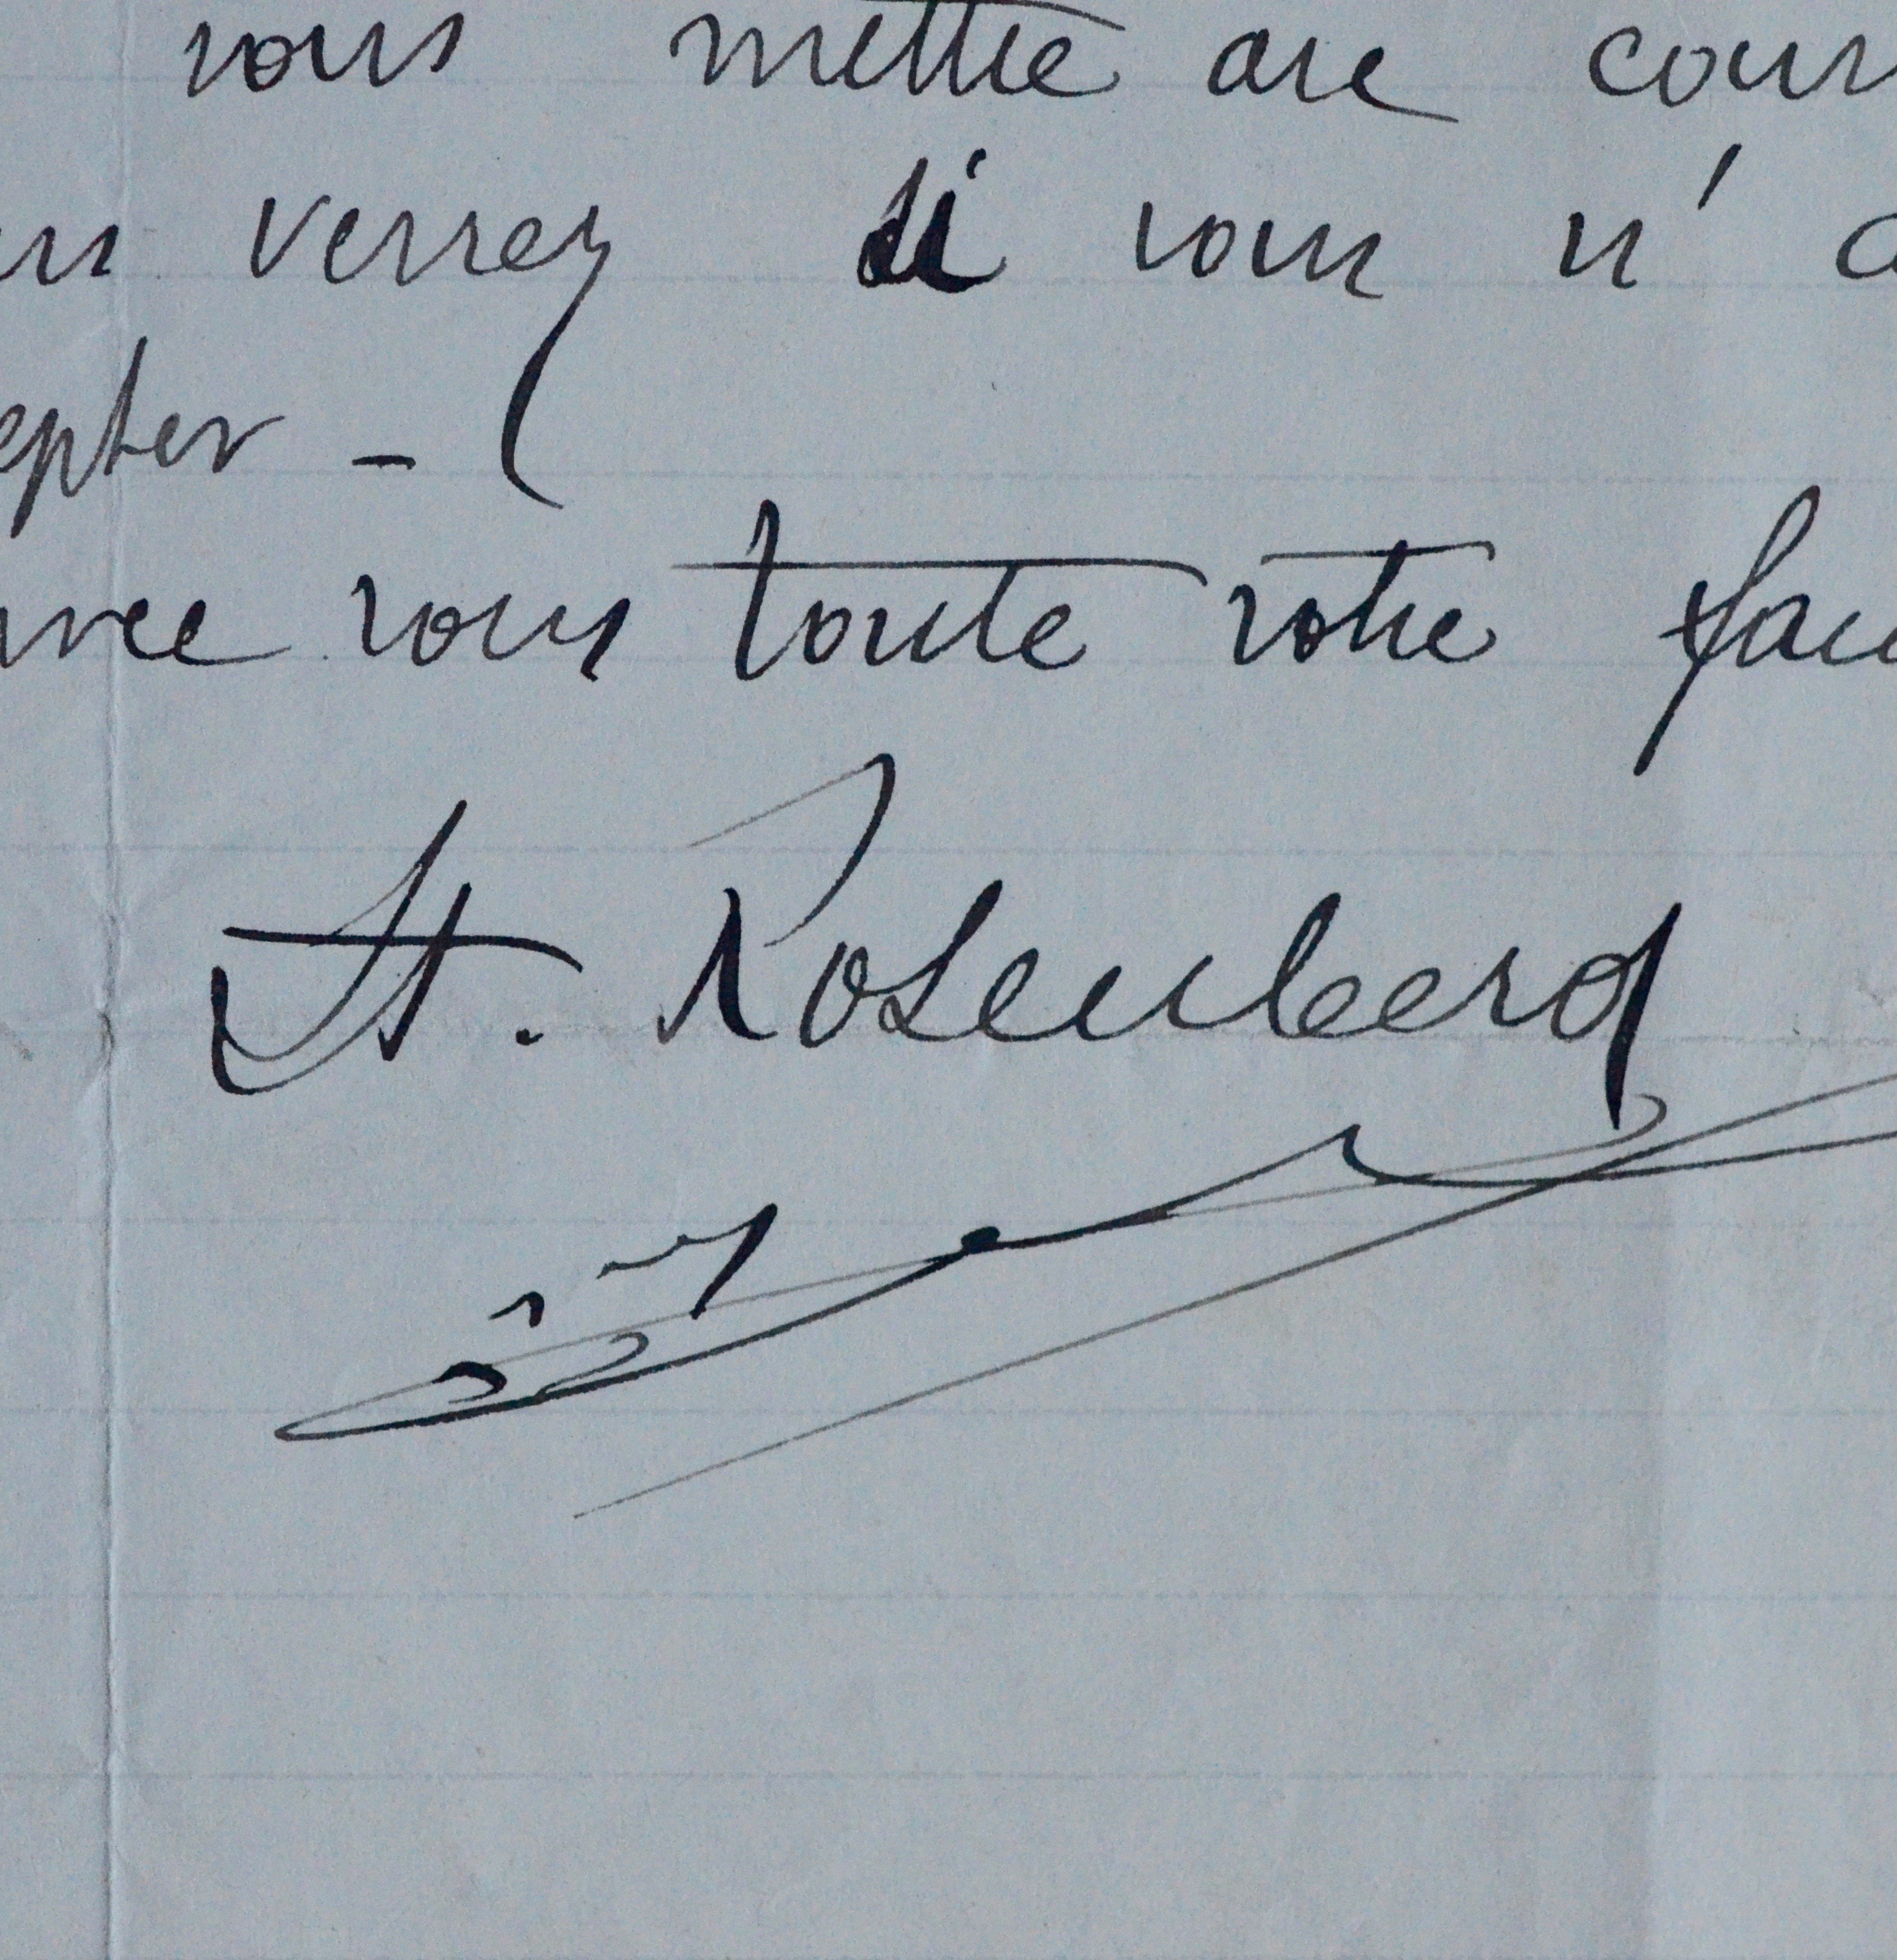 vous mettre au cour
us verrez si vous n' a
epter -
avec vous toute votre fam
A. Rosenberg